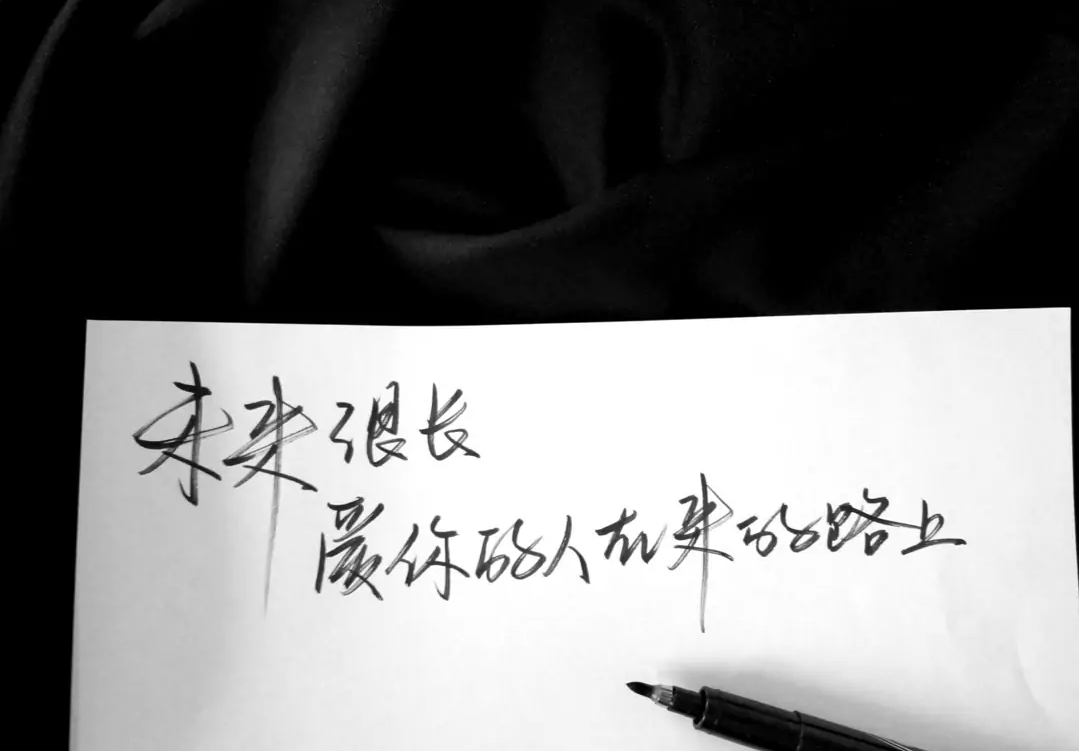 未来很长
爱你的人在来的路上